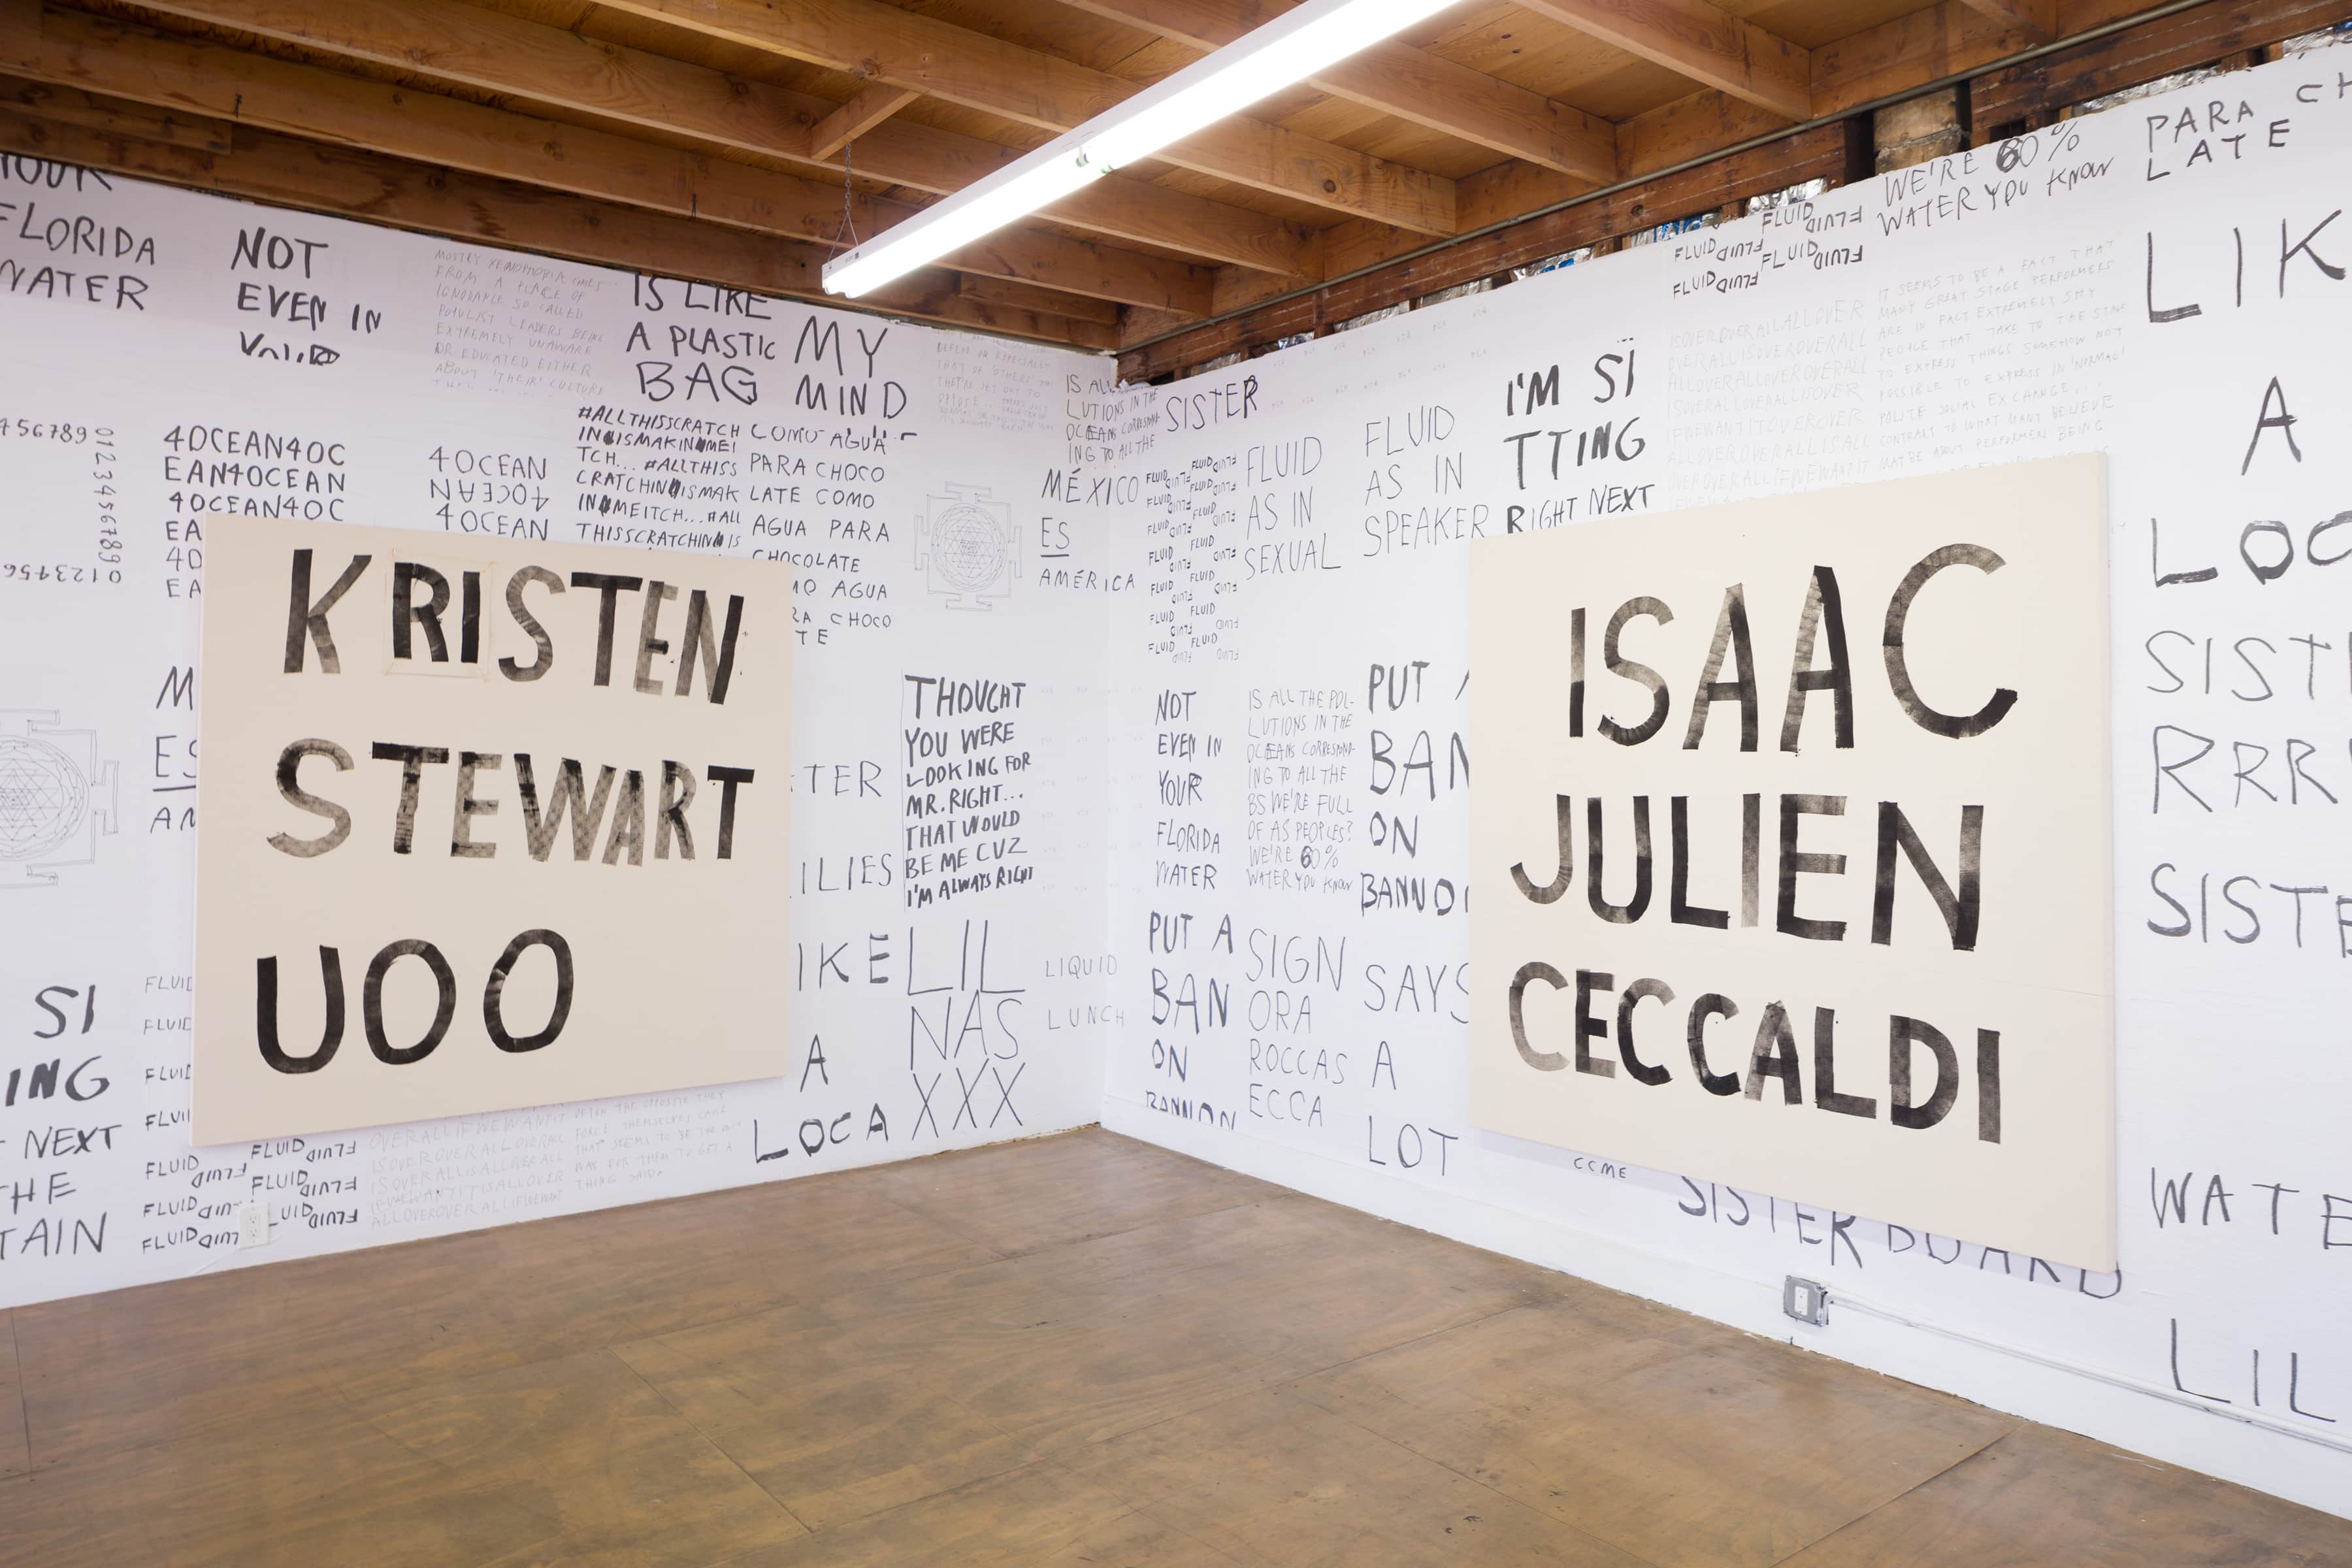 FLORIDA
WATER
NOT
EVEN IN
MOSTLY XENOPHOBIA COMES
FROM A PLACE OF
IGNORANCE SO CALLED
POPULIST LEADERS BEING
EXTREMELY UNAWARE
OR EDUCATED EITHER
ABOUT 'THEIR' CULTURE
IS LIKE
A PLASTIC
BAG
MY
MIND
456789
0123456789
0123456
4OCEAN4OC
EAN4OCEAN
4OCEAN4OC
EA
4O
EA
4OCEAN
4OCEAN
4OCEAN
#ALLTHISSCRATCH
INISMAKINMEI
TCH... #ALLTHISS
CRATCHINISMAK
INMEITCH... #ALL
THISSCRATCHINIS
COMO AGUA
PARA CHOCO
LATE COMO
AGUA PARA
CHOCOLATE
MO AGUA
RA CHOCO
TE
KRISTEN
STEWART
UOO
M
ES
AM
SI
ING
NEXT
THE
TAIN
FLUID
FLUID
FLUID
FLUID
FLUID FLUID FLUID FLUID
FLUID FLUID FLUID FLUID
FLUID FLUID FLUID FLUID
OVERALLIFWEWANTIT
ISOVEROVERALLOVERAL
ISOVERALLISALLOVERALL
IFWEWANTITISALLOVER
ALLOVEROVERALLIFWEWANT
OFTEN THE OPPOSITE THEY
FORCE THEMSELVES CAUSE
THAT SEEMS TO BE THE ONLY
WAY FOR THEM TO GET A
THING SAID.
TER
ILIES
IKE
A
LOCA
THOUGHT
YOU WERE
LOOKING FOR
MR. RIGHT...
THAT WOULD
BE ME CUZ
I'M ALWAYS RIGHT
LIL
NAS
XXX
LIQUID
LUNCH
IS ALL
LUTIONS IN THE
OCEANS CORRESPOND-
ING TO ALL THE
MÉXICO
ES
AMÉRICA
SISTER
FLUID
AS IN
SEXUAL
FLUID
AS IN
SPEAKER
I'M SI
TTING
RIGHT NEXT
NOT
EVEN IN
YOUR
FLORIDA
WATER
PUT A
BAN
ON
BANNON
IS ALL THE POL-
LUTIONS IN THE
OCEANS CORRESPOND-
ING TO ALL THE
BS WE'RE FULL
OF AS PEOPLES?
WE'RE 60%
WATER YOU KNOW
SIGN
ORA
ROCCAS
ECCA
PUT A
BAN
ON
BANNO
SAYS
A
LOT
ISAAC
JULIEN
CECCALDI
CCME
SISTER BOARD
FLUID FLUID FLUID FLUID
FLUID FLUID FLUID FLUID
FLUID FLUID
WE'RE 60%
WATER YOU KNOW
IT SEEMS TO BE A FACT THAT
MANY GREAT STAGE PERFORMERS
ARE IN FACT EXTREMELY SHY
PEOPLE THAT TAKE TO THE STAGE
TO EXPRESS THINGS SOMEHOW NOT
POSSIBLE TO EXPRESS IN 'NORMAL'
POLITE SOCIAL EXCHANGE...
CONTRARY TO WHAT MANY BELIEVE
PARA CH
LATE
LIK
A
LOC
SISTE
RRR
SISTE
WATE
LIL